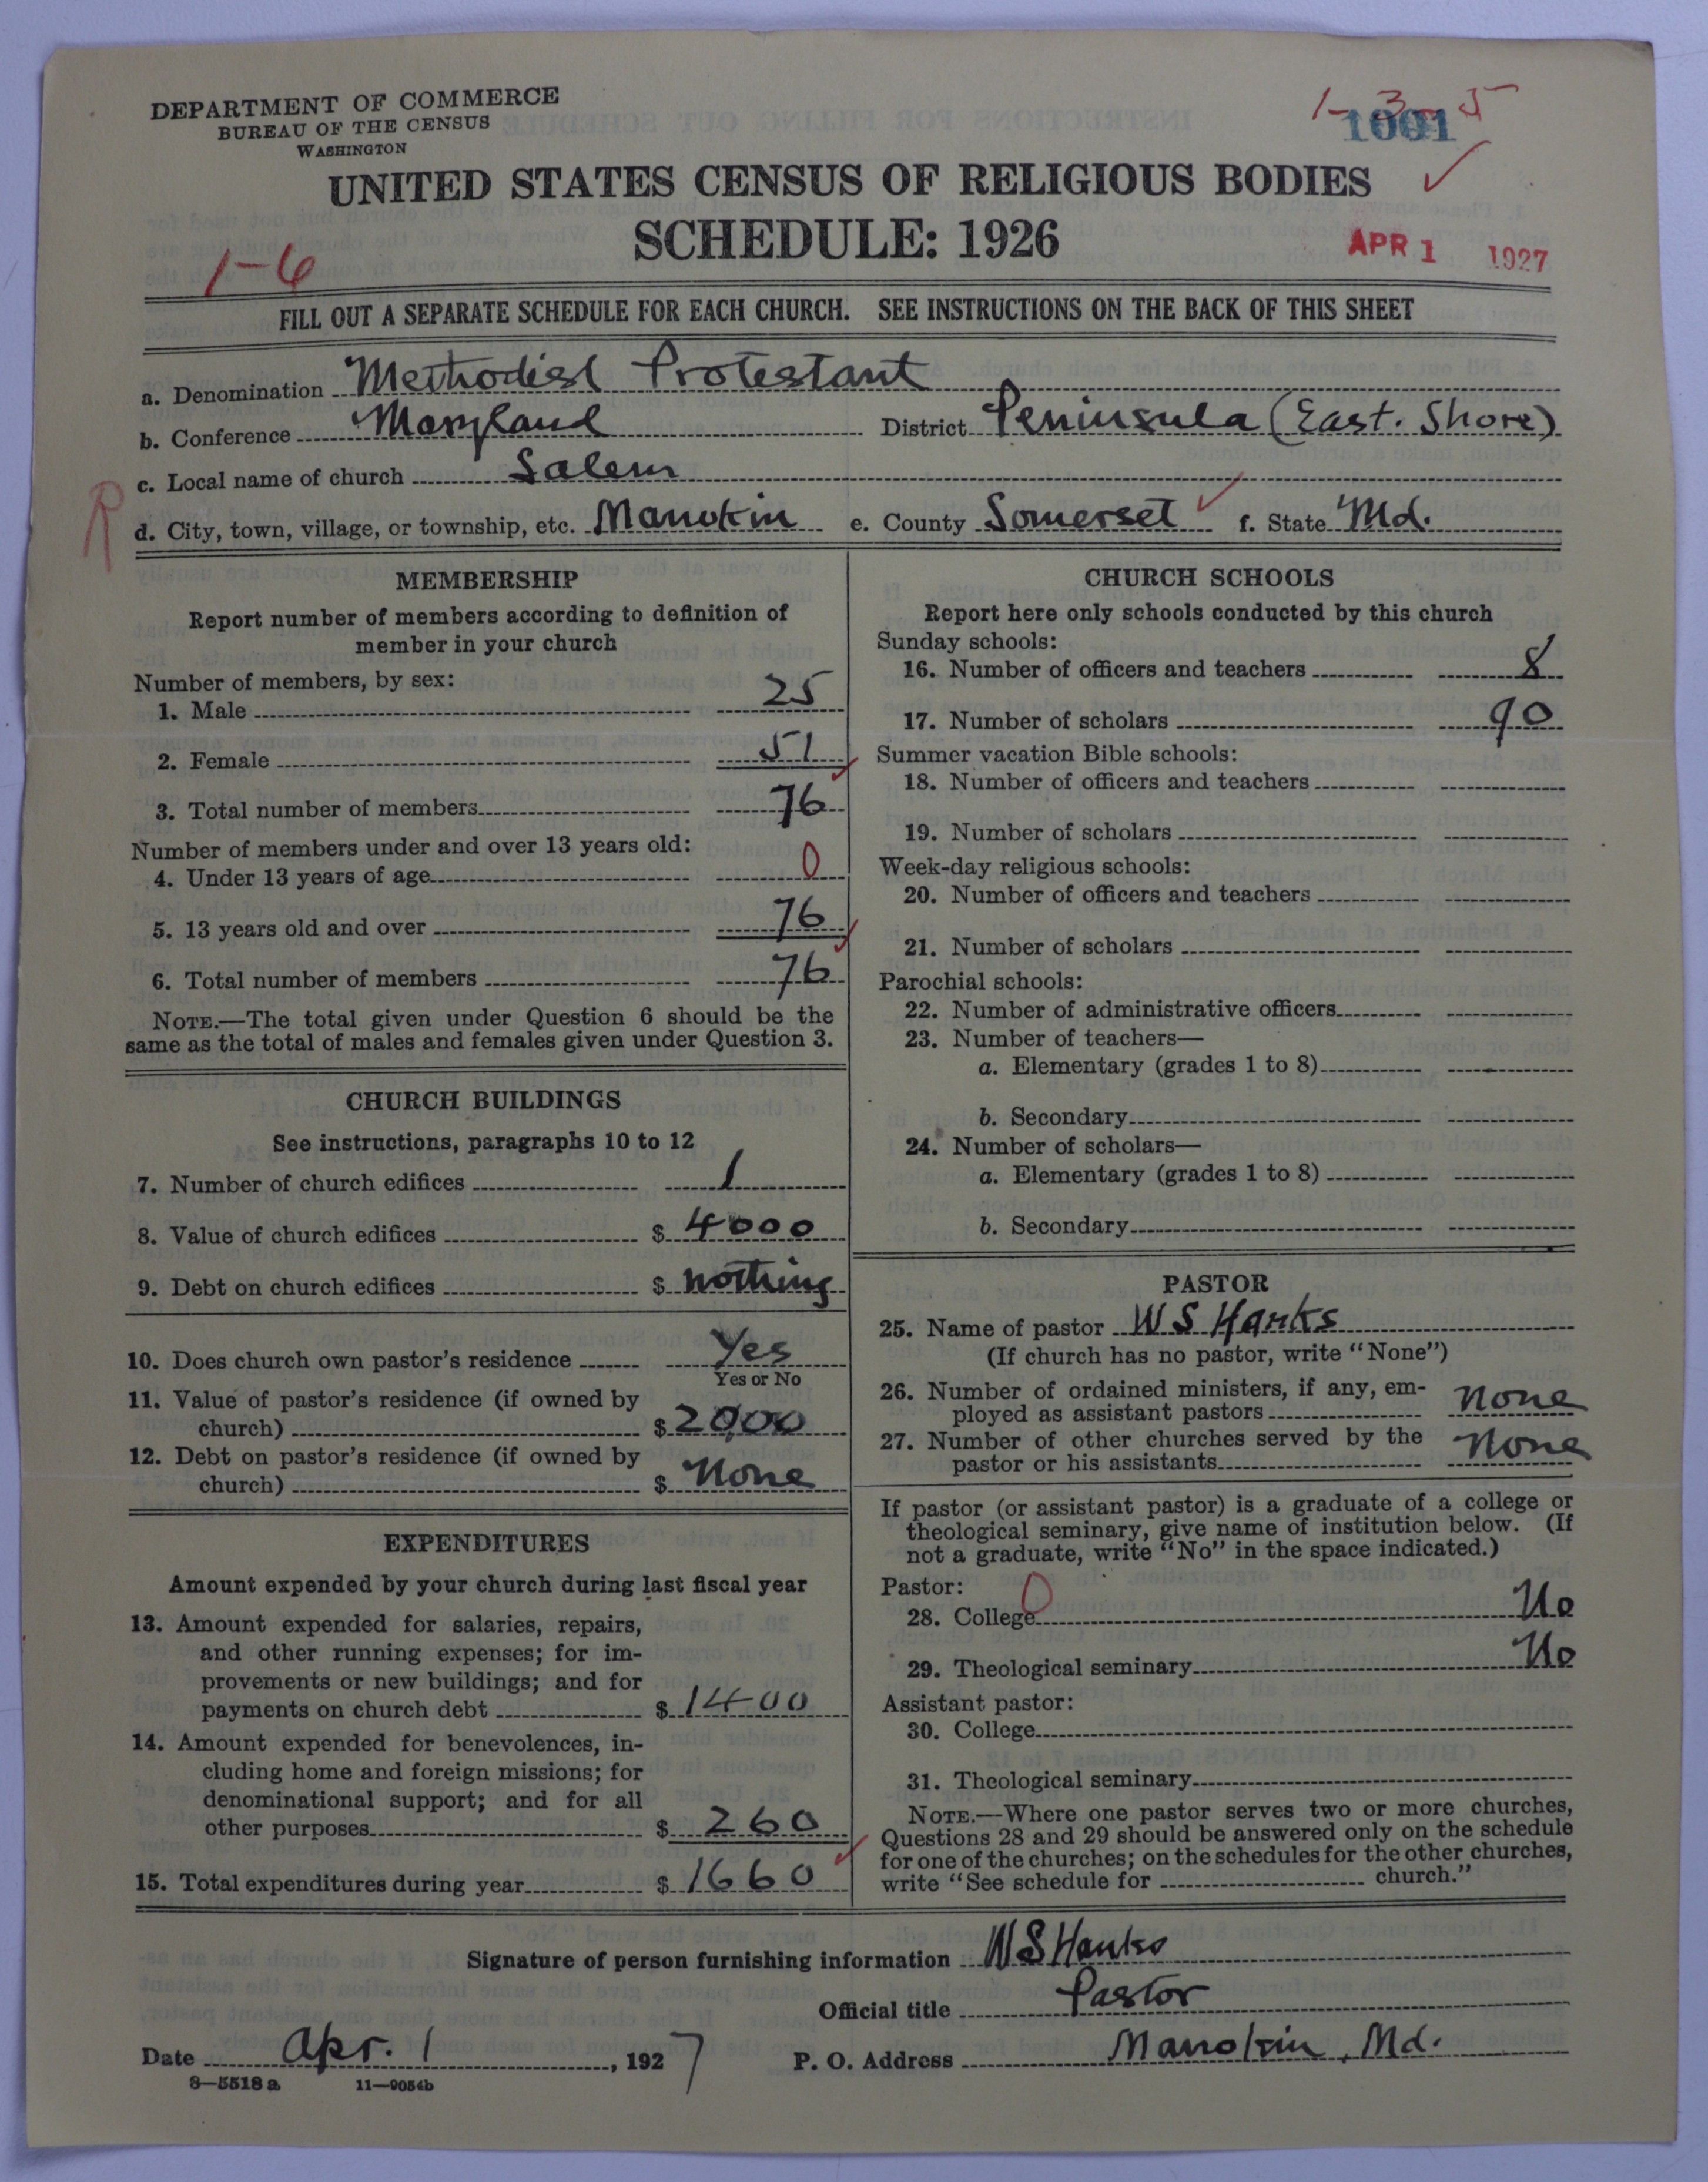 DEPARTMENT OF COMMERCE
BUREAU OF THE CENSUS
WASHINGTON
1-3-5
1001
UNITED STATES CENSUS OF RELIGIOUS BODIES
SCHEDULE: 1926
1-6
APR 1 1927
FILL OUT A SEPARATE SCHEDULE FOR EACH CHURCH. SEE INSTRUCTIONS ON THE BACK OF THIS SHEET
a. Denomination Methodist Protestant
b. Conference Maryland District Peninsula (East. Shore)
c. Local name of church Salem
R
d. City, town, village, or township, etc. Manokin e. County Somerset f. State Md.
MEMBERSHIP
Report number of members according to definition of
member in your church
Number of members, by sex:
1. Male 25
2. Female 51
3. Total number of members 76
Number of members under and over 13 years old:
4. Under 13 years of age 0
5. 13 years old and over 76
6. Total number of members 76
NOTE.—The total given under Question 6 should be the
same as the total of males and females given under Question 3.
CHURCH BUILDINGS
See instructions, paragraphs 10 to 12
7. Number of church edifices 1
8. Value of church edifices $ 4000
9. Debt on church edifices $ nothing
10. Does church own pastor's residence Yes
Yes or No
11. Value of pastor's residence (if owned by
church) $ 2000
12. Debt on pastor's residence (if owned by
church) $ None
EXPENDITURES
Amount expended by your church during last fiscal year
13. Amount expended for salaries, repairs,
and other running expenses; for im-
provements or new buildings; and for
payments on church debt $ 1400
14. Amount expended for benevolences, in-
cluding home and foreign missions; for
denominational support; and for all
other purposes $ 260
15. Total expenditures during year $ 1660
CHURCH SCHOOLS
Report here only schools conducted by this church
Sunday schools:
16. Number of officers and teachers 8
17. Number of scholars 90
Summer vacation Bible schools:
18. Number of officers and teachers
19. Number of scholars
Week-day religious schools:
20. Number of officers and teachers
21. Number of scholars
Parochial schools:
22. Number of administrative officers
23. Number of teachers—
a. Elementary (grades 1 to 8)
b. Secondary
24. Number of scholars—
a. Elementary (grades 1 to 8)
b. Secondary
PASTOR
25. Name of pastor W S Hanks
(If church has no pastor, write "None")
26. Number of ordained ministers, if any, em-
ployed as assistant pastors none
27. Number of other churches served by the
pastor or his assistants None
If pastor (or assistant pastor) is a graduate of a college or
theological seminary, give name of institution below. (If
not a graduate, write "No" in the space indicated.)
Pastor: 0
28. College No
29. Theological seminary No
Assistant pastor:
30. College
31. Theological seminary
NOTE.—Where one pastor serves two or more churches,
Questions 28 and 29 should be answered only on the schedule
for one of the churches; on the schedules for the other churches,
write "See schedule for church."
Signature of person furnishing information W S Hanks
Official title Pastor
Date Apr. 1, 1927 P. O. Address Manokin, Md.
8—5518 a 11—9054b